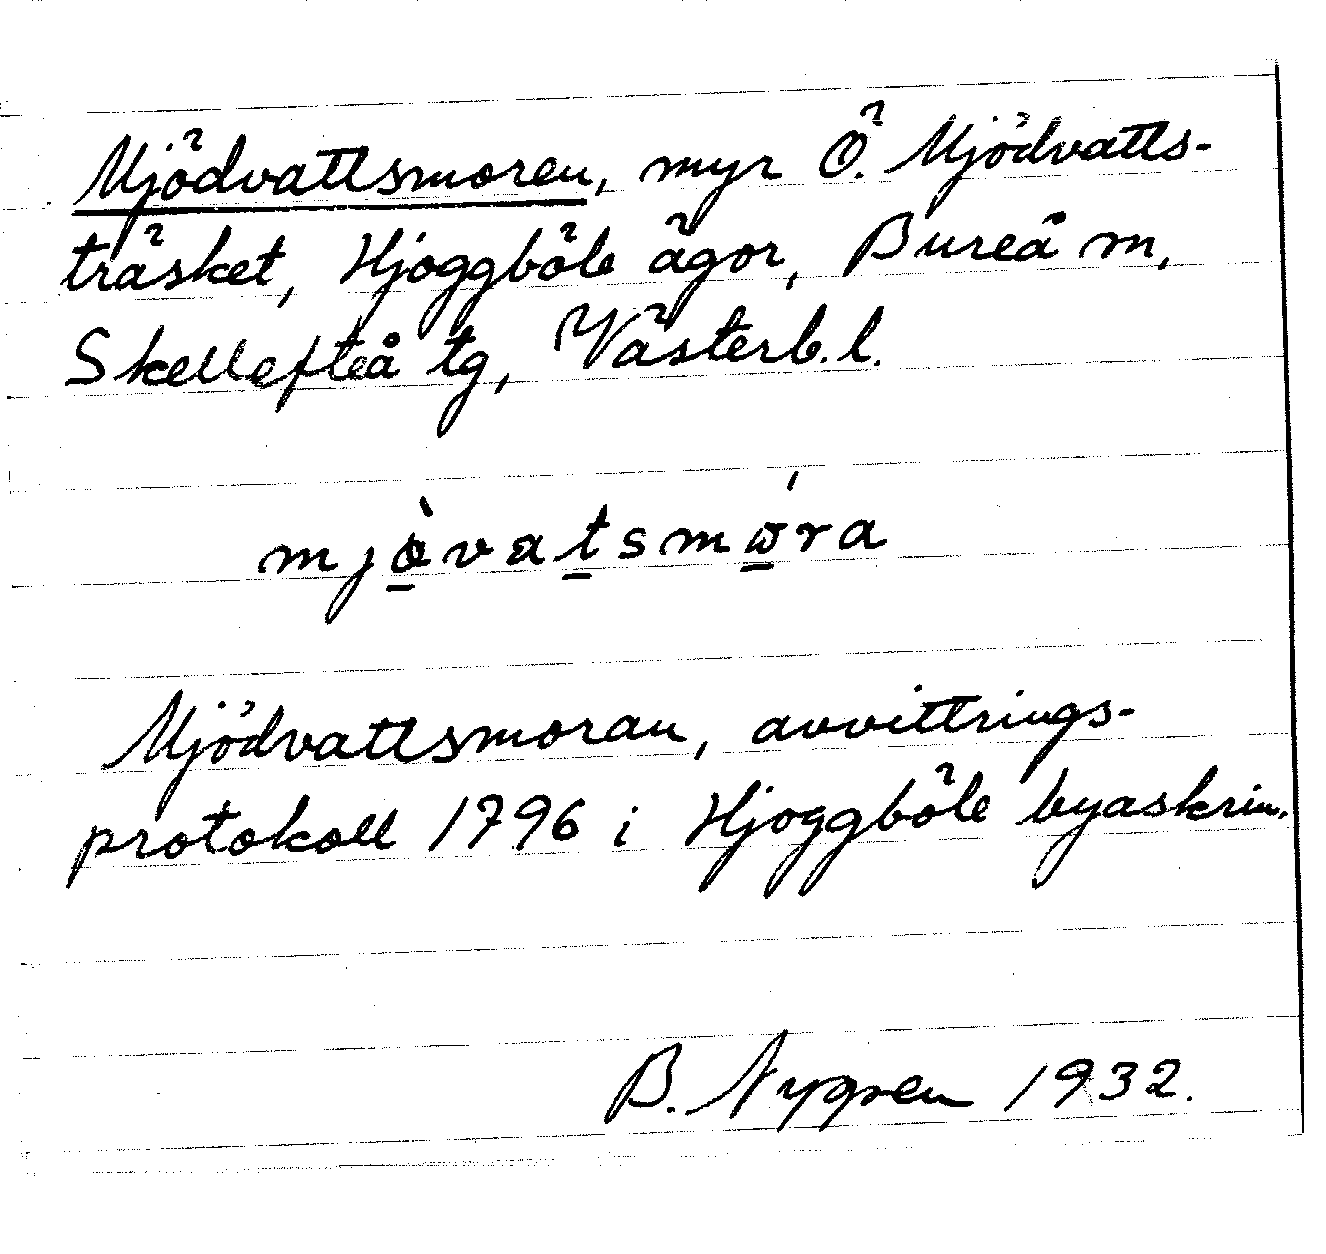 Mjödvattsmoren, myr Ö. Mjödvatts-
träsket, Hjoggböle ägor, Bureå m,
Skellefteå tg, Västerb. l.
mjö̱̀vaṯsmώ̱ra
Mjödvattsmoran, avvittrings-
protokoll 1796 i Hjoggböle byaskrin.
B. Nygren 1932.